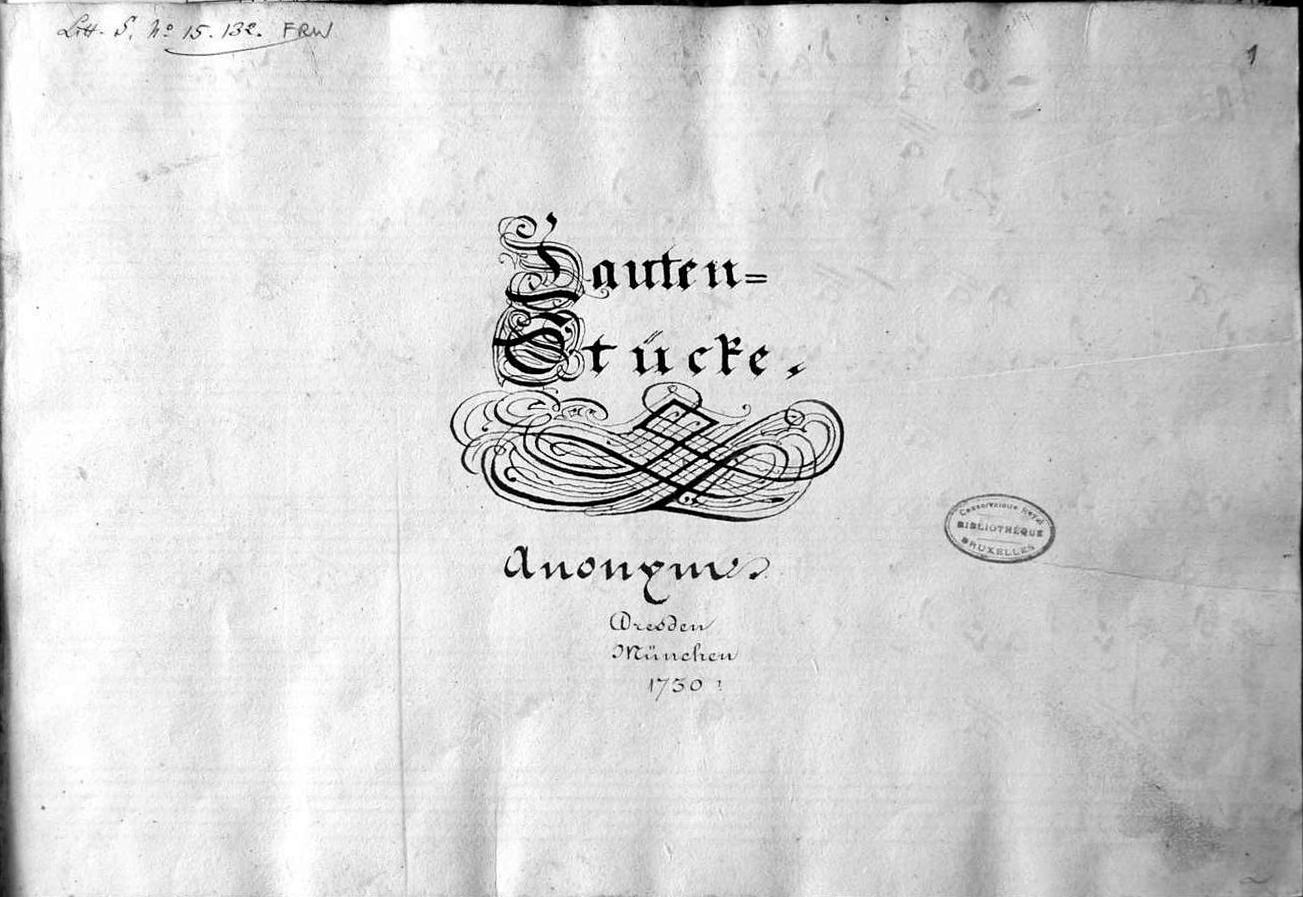 Litt. S. Nº 15.132. FRW
1
Lauten=
Stücke.
Anonyme
Dresden
München
1730 ?
Conservatoire Royal
BIBLIOTHÈQUE
BRUXELLES